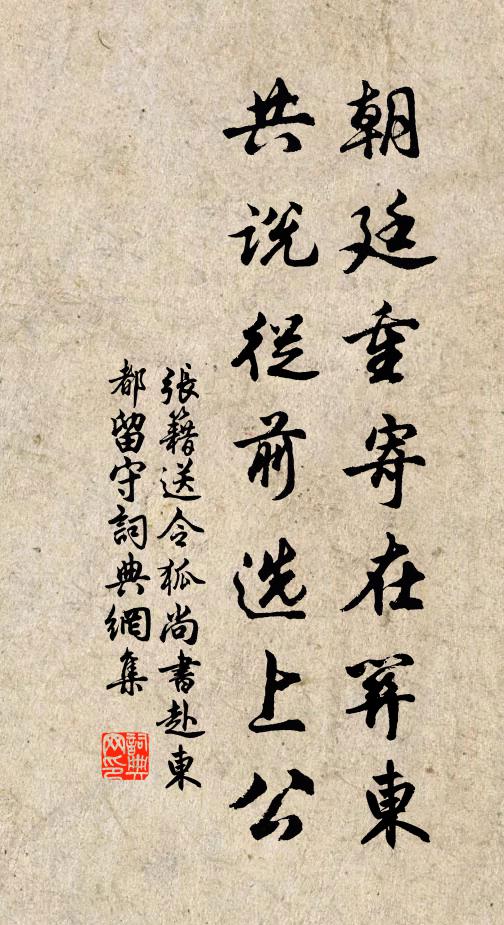 朝廷重寄在関東
共说從前选上公
張籍送令狐尚書赴東
都留守詞典網集
詞典网印